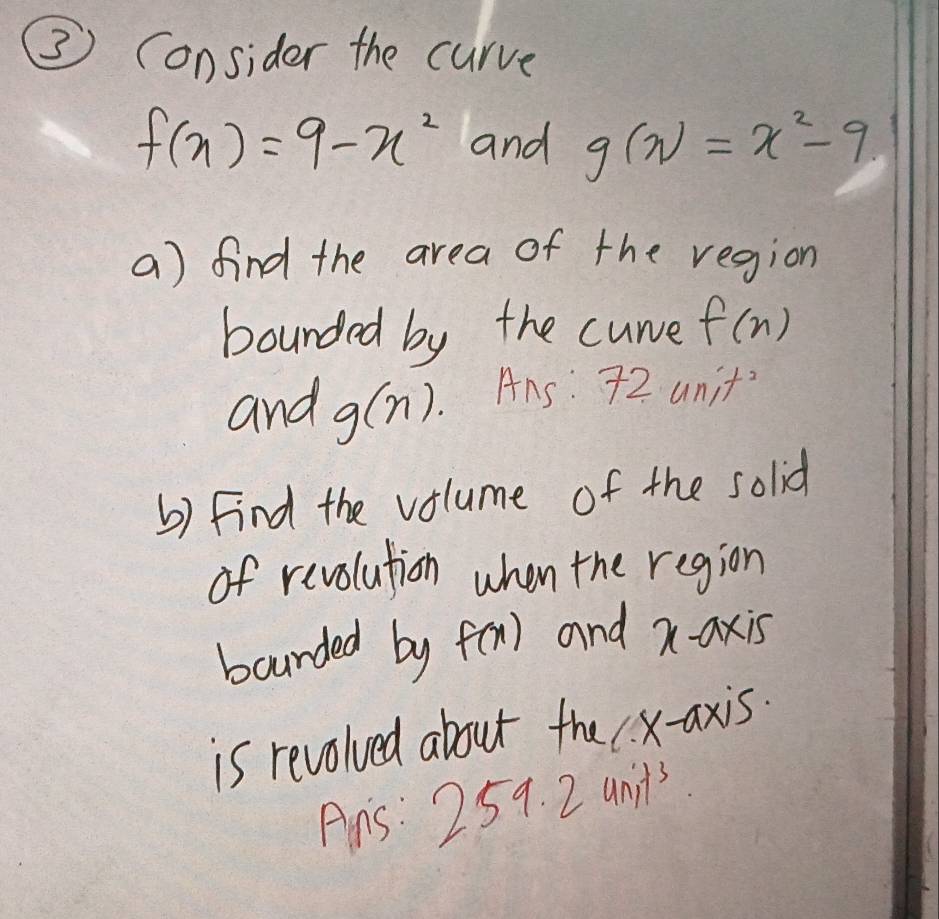 ③ Consider the curve
f(x) = 9 - x² and g(x) = x² - 9.
a) find the area of the region
bounded by the curve f(x)
and g(x). Ans: 72 unit²
b) Find the volume of the solid
of revolution when the region
bounded by f(x) and x-axis
is revolved about the x-axis.
Ans: 259.2 unit³.